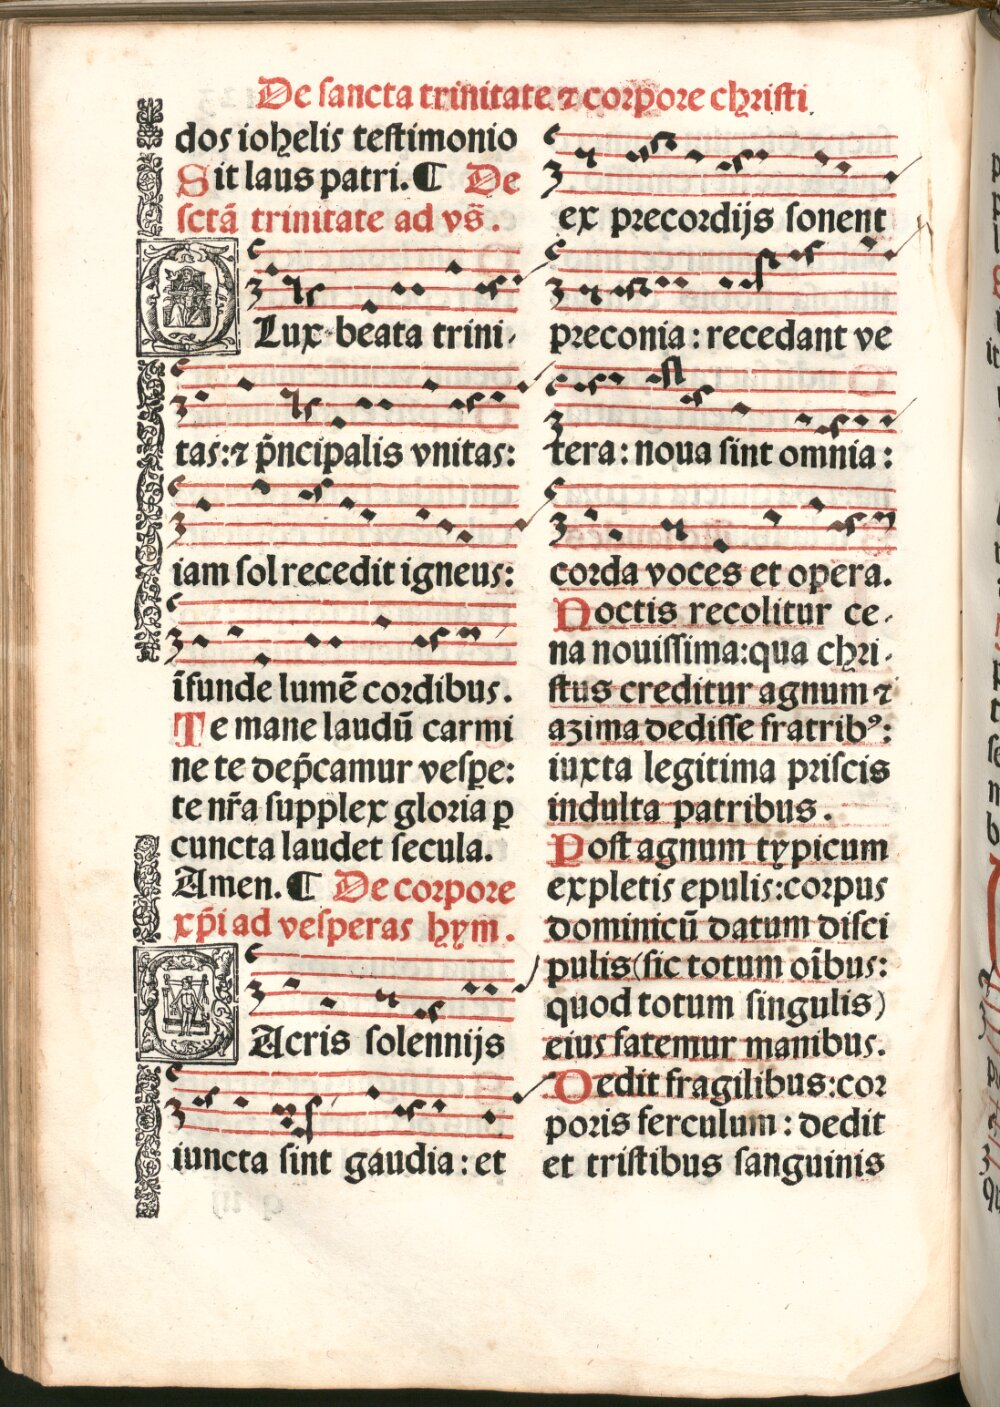 De sancta trinitate ⁊ corpore christi
dos iohelis testimonio
Sit laus patri. ¶ De
sctā trinitate ad vs̄.
O Lux beata trini-
tas: ⁊ p̄ncipalis vnitas:
iam sol recedit igneus:
īfunde lumē cordibus.
Te mane laudū carmi
ne te dep̄camur vespe:
te nr̄a supplex gloria ꝑ
cuncta laudet secula.
Amen. ¶ De corpore
xp̄i ad vesperas hym.
SAcris solennijs
iuncta sint gaudia: et
ex precordijs sonent
preconia: recedant ve
tera: noua sint omnia:
corda voces et opera.
Noctis recolitur ce-
na nouissima: qua chri-
stus creditur agnum ⁊
azima dedisse fratribꝰ:
iuxta legitima priscis
indulta patribus.
Post agnum typicum
expletis epulis: corpus
dominicū datum disci
pulis (sic totum oībus:
quod totum singulis)
eius fatemur manibus.
Dedit fragilibus: cor
poris ferculum: dedit
et tristibus sanguinis